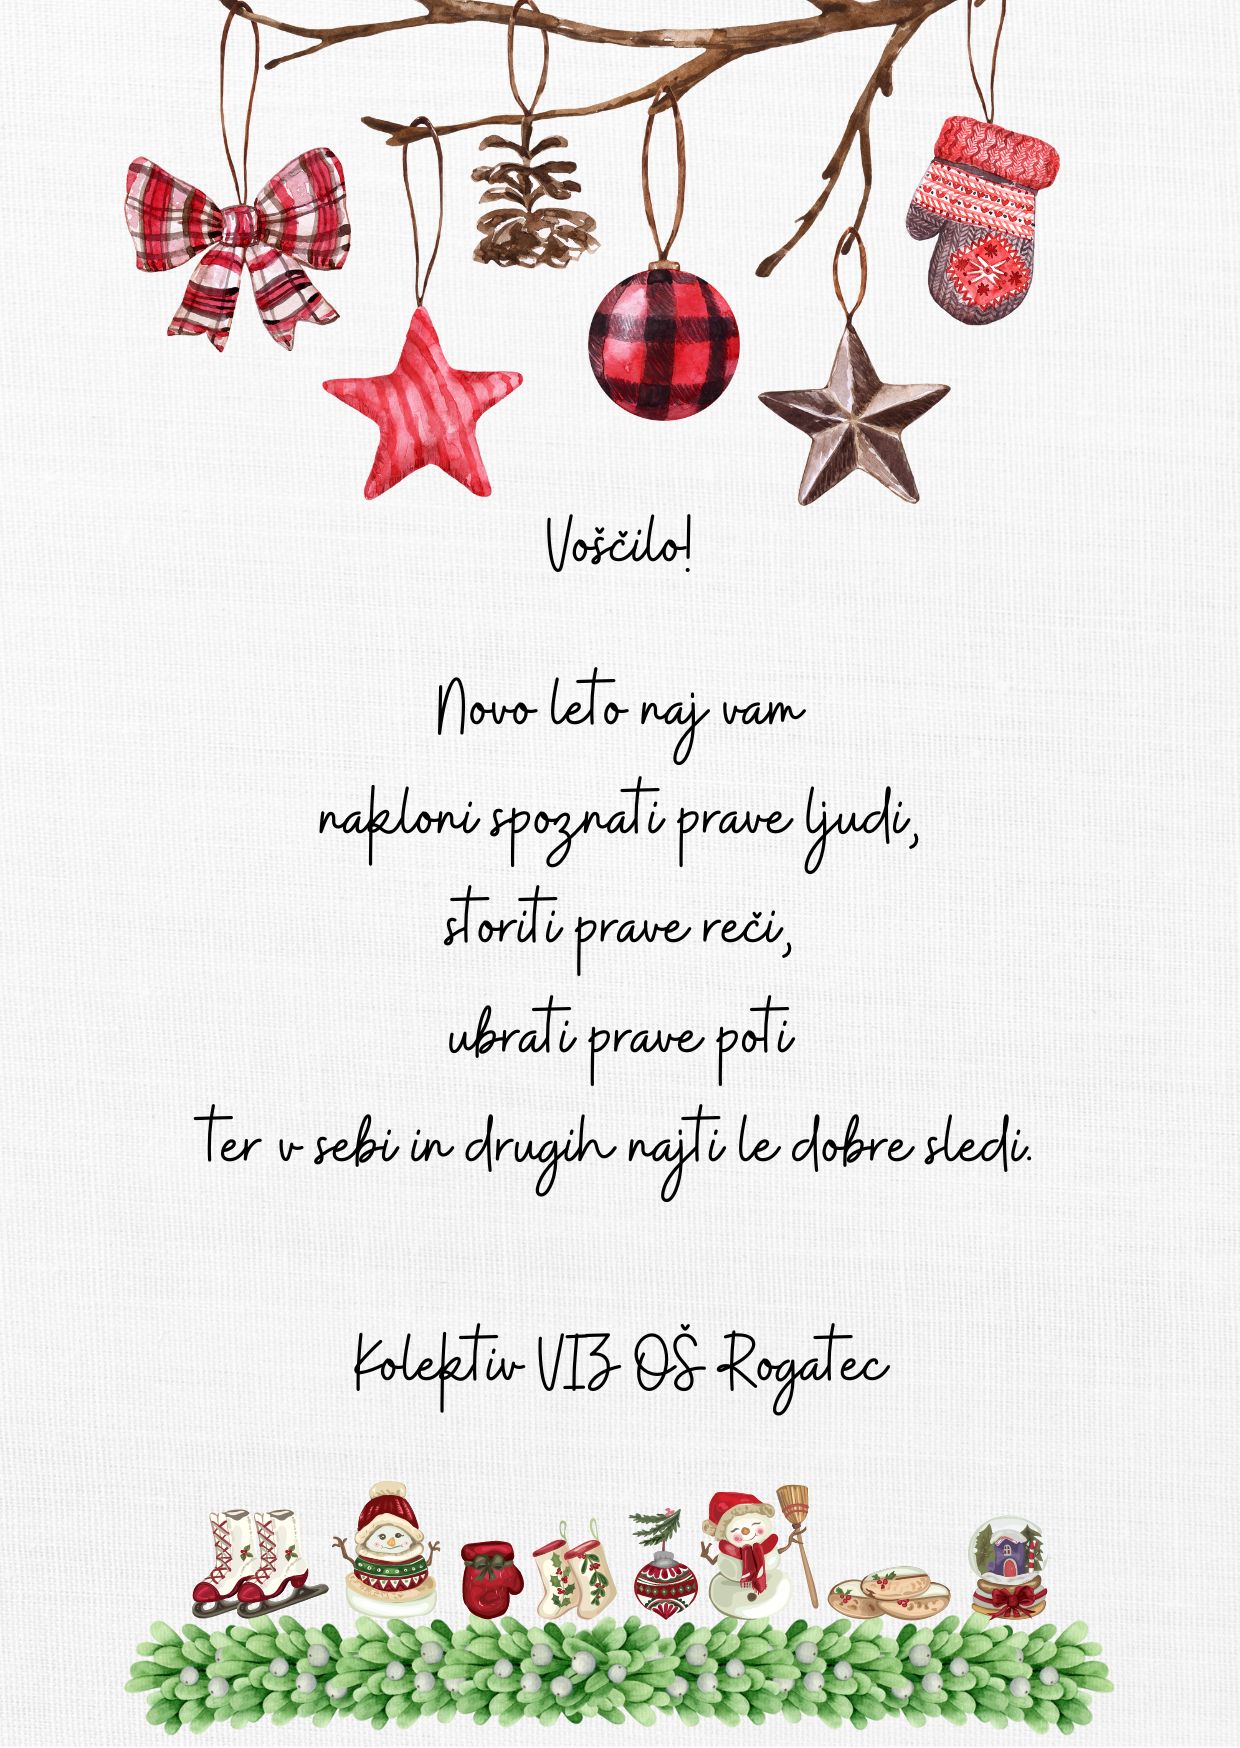 Voščilo!
Novo leto naj vam
nakloni spoznati prave ljudi,
storiti prave reči,
ubrati prave poti
ter v sebi in drugih najti le dobre sledi.
Kolektiv VIZ OŠ Rogatec